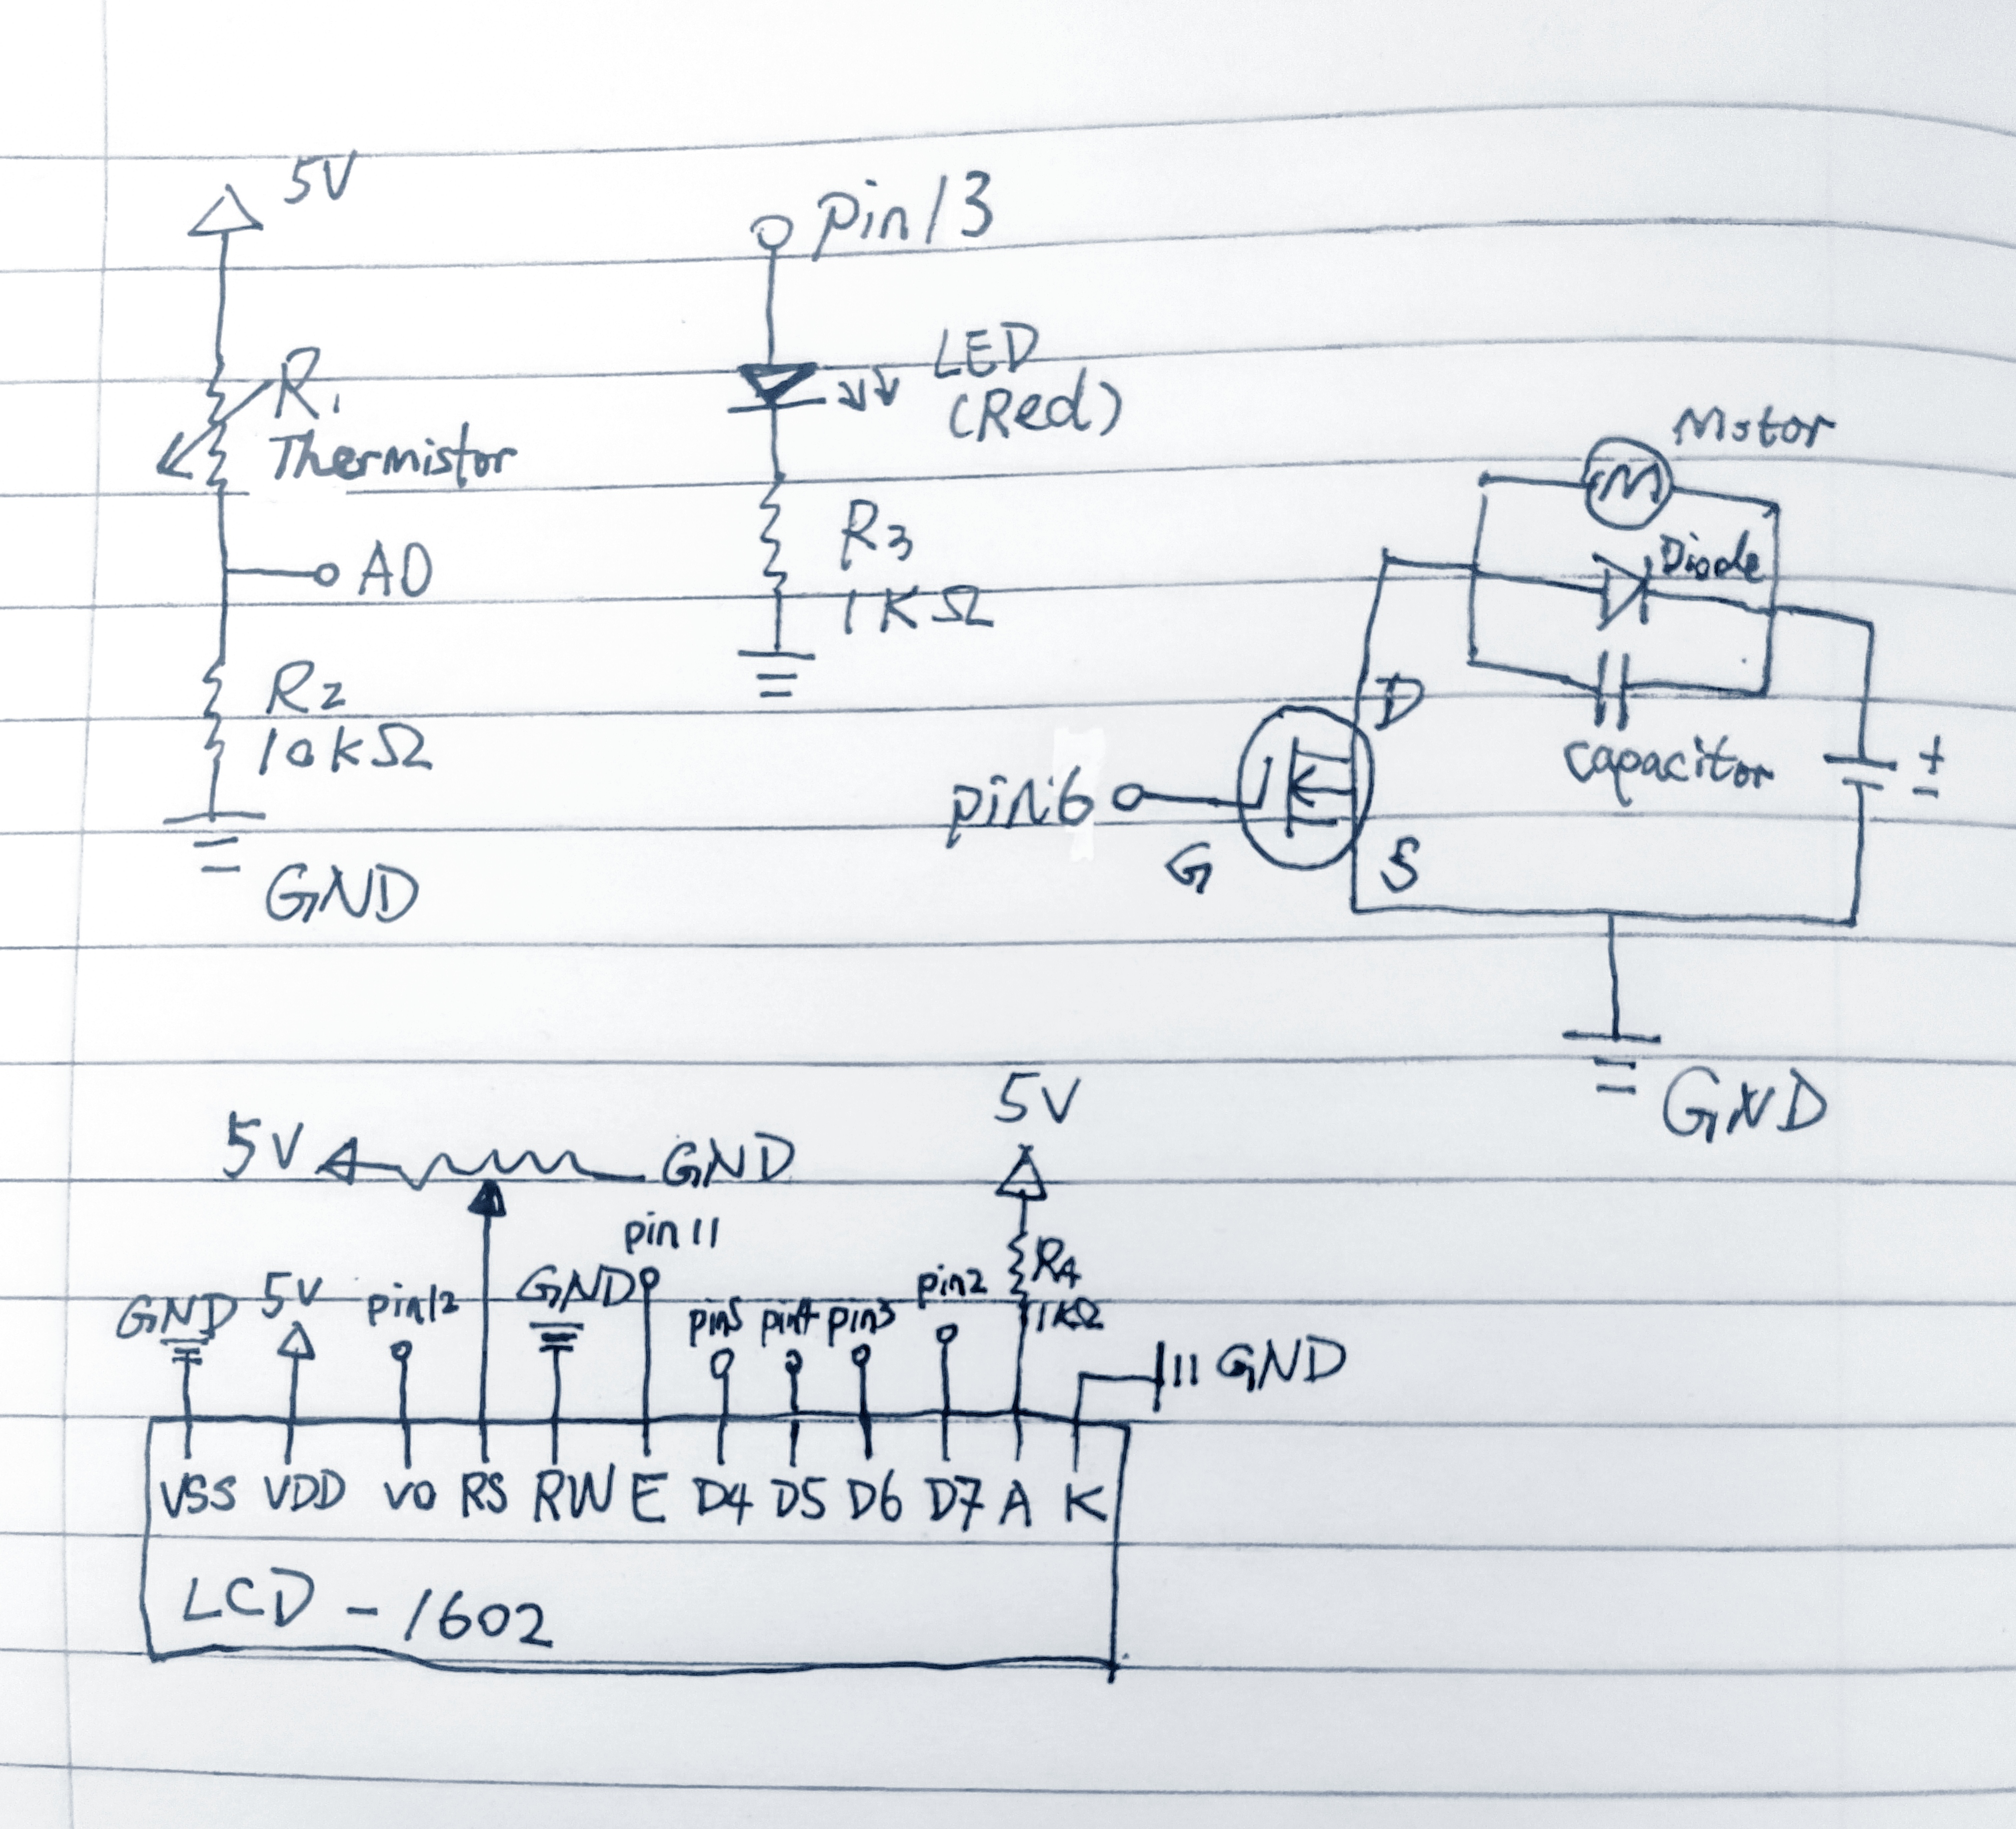 5V
R1
Thermistor
A0
R2
10kΩ
GND
pin13
LED
(Red)
R3
1KΩ
Motor
M
Diode
D
capacitor
+
-
pin6
G
S
GND
5V
GND
5V
R4
1kΩ
GND
5V
pin12
GND
pin11
pin5
pin4
pin3
pin2
GND
VSS VDD VO RS RW E D4 D5 D6 D7 A K
LCD-1602